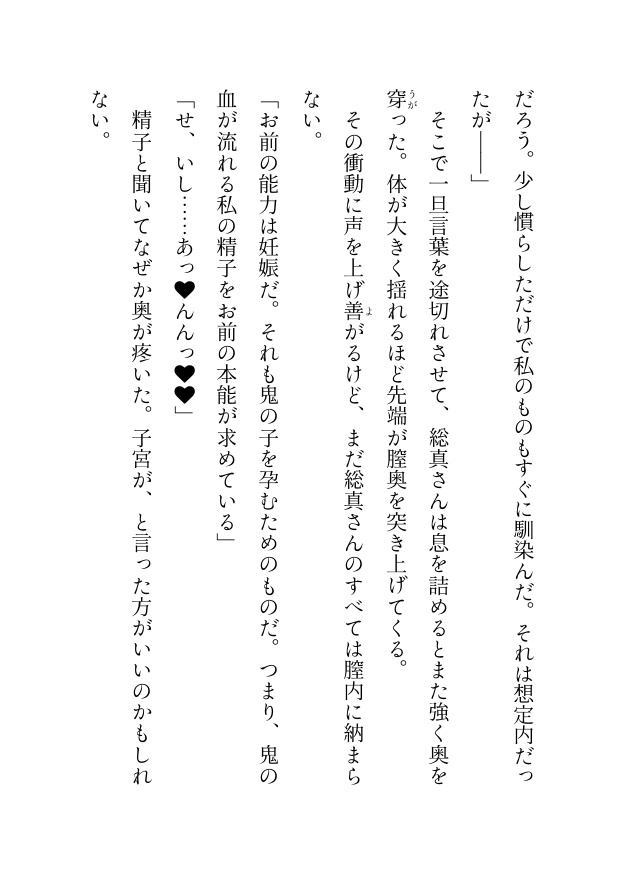 だろう。少し慣らしただけで私のものもすぐに馴染んだ。それは想定内だっ
たが――」
　そこで一旦言葉を途切れさせて、総真さんは息を詰めるとまた強く奥を
穿った。体が大きく揺れるほど先端が膣奥を突き上げてくる。
　その衝動に声を上げ善がるけど、まだ総真さんのすべては膣内に納まら
ない。
「お前の能力は妊娠だ。それも鬼の子を孕むためのものだ。つまり、鬼の
血が流れる私の精子をお前の本能が求めている」
「せ、いし……あっ♥んんっ♥♥」
　精子と聞いてなぜか奥が疼いた。子宮が、と言った方がいいのかもしれ
ない。